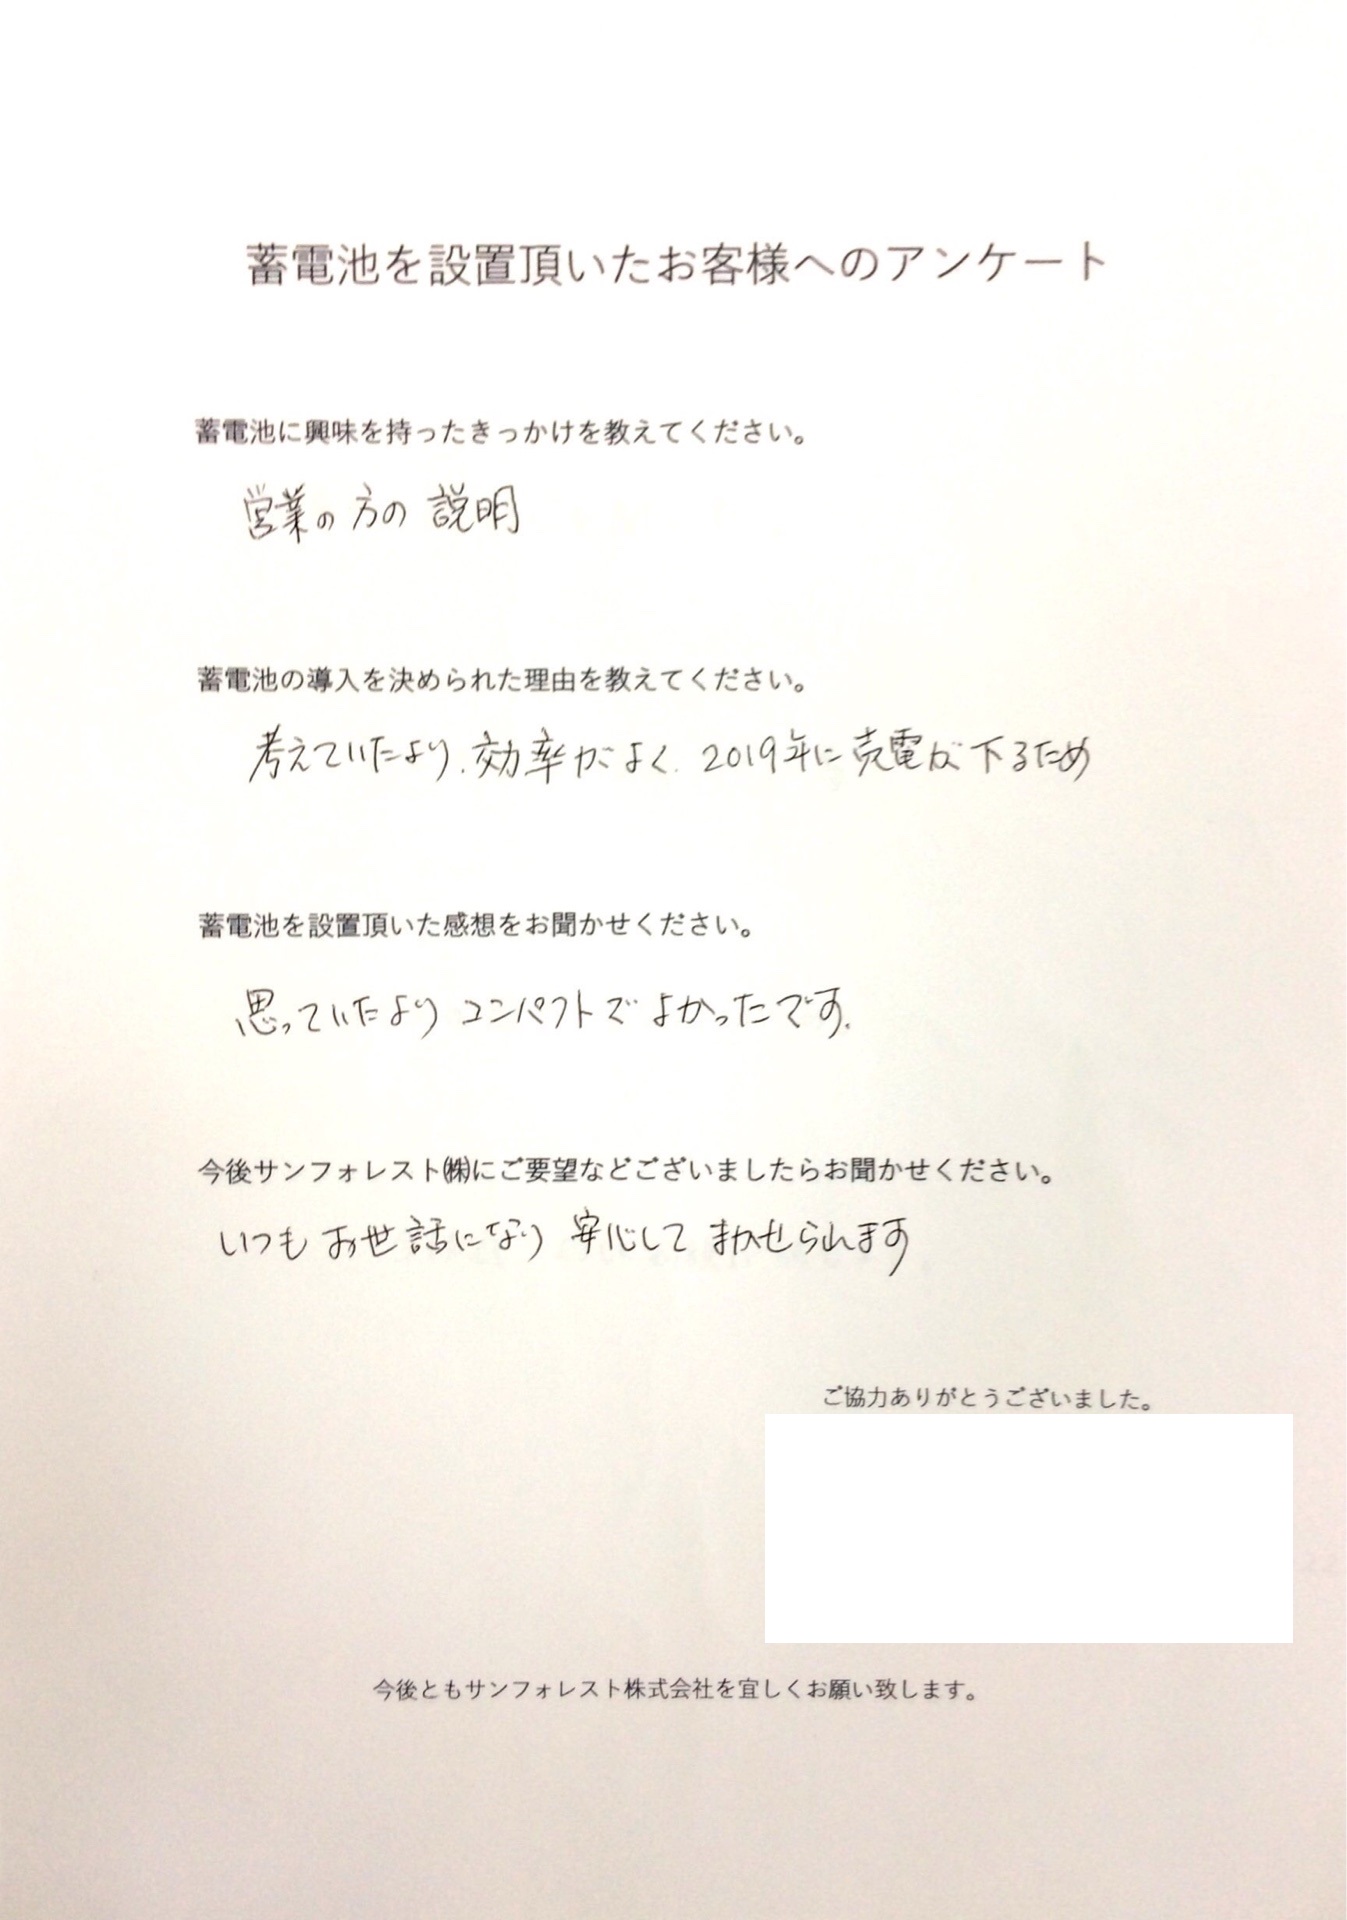 蓄電池を設置頂いたお客様へのアンケート
蓄電池に興味を持ったきっかけを教えてください。
営業の方の説明
蓄電池の導入を決められた理由を教えてください。
考えていたより、効率がよく、2019年に売電が下るため
蓄電池を設置頂いた感想をお聞かせください。
思っていたよりコンパクトでよかったです。
今後サンフォレスト㈱にご要望などございましたらお聞かせください。
いつもお世話になり安心してまかせられます
ご協力ありがとうございました。
今後ともサンフォレスト株式会社を宜しくお願い致します。